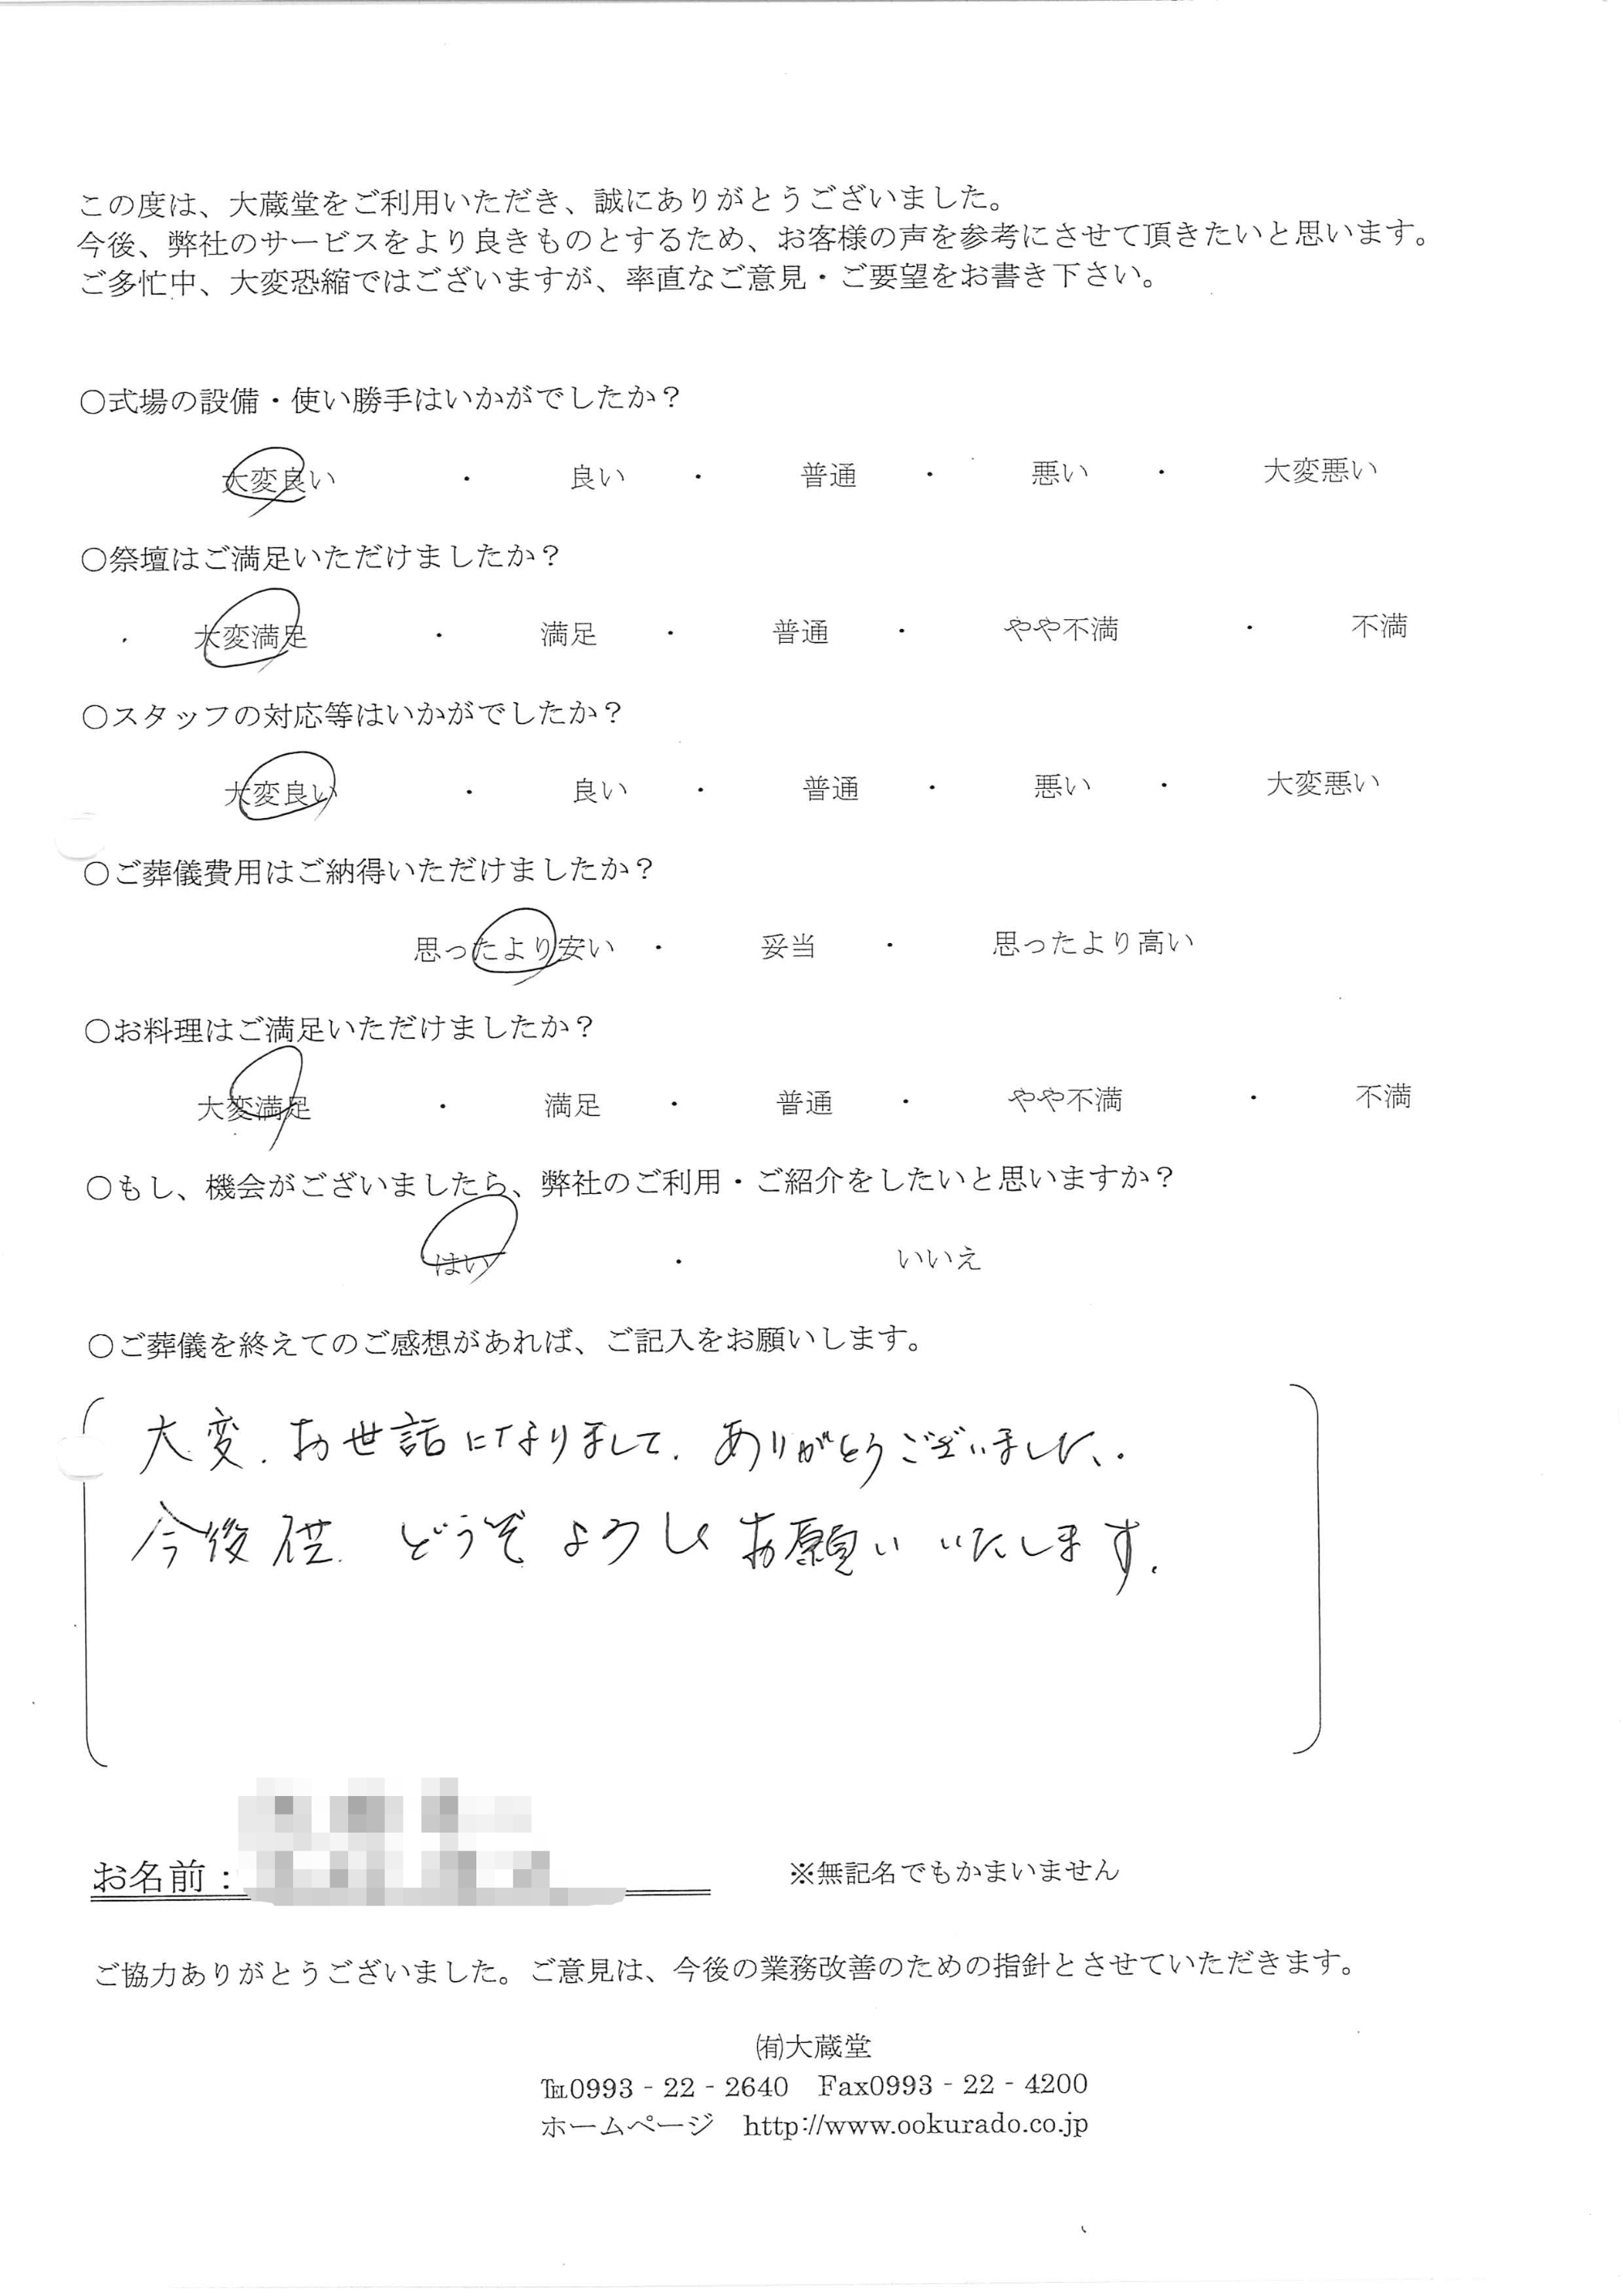 この度は、大蔵堂をご利用いただき、誠にありがとうございました。
今後、弊社のサービスをより良きものとするため、お客様の声を参考にさせて頂きたいと思います。
ご多忙中、大変恐縮ではございますが、率直なご意見・ご要望をお書き下さい。
○式場の設備・使い勝手はいかがでしたか？
大変良い ・ 良い ・ 普通 ・ 悪い ・ 大変悪い
○祭壇はご満足いただけましたか？
大変満足 ・ 満足 ・ 普通 ・ やや不満 ・ 不満
○スタッフの対応等はいかがでしたか？
大変良い ・ 良い ・ 普通 ・ 悪い ・ 大変悪い
○ご葬儀費用はご納得いただけましたか？
思ったより安い ・ 妥当 ・ 思ったより高い
○お料理はご満足いただけましたか？
大変満足 ・ 満足 ・ 普通 ・ やや不満 ・ 不満
○もし、機会がございましたら、弊社のご利用・ご紹介をしたいと思いますか？
はい ・ いいえ
○ご葬儀を終えてのご感想があれば、ご記入をお願いします。
大変、お世話になりまして、ありがとうございました。
今後 どうぞ よろしく お願い いたします。
お名前： ※無記名でもかまいません
ご協力ありがとうございました。ご意見は、今後の業務改善のための指針とさせていただきます。
㈲大蔵堂
℡0993‐22‐2640 Fax0993‐22‐4200
ホームページ http://www.ookurado.co.jp